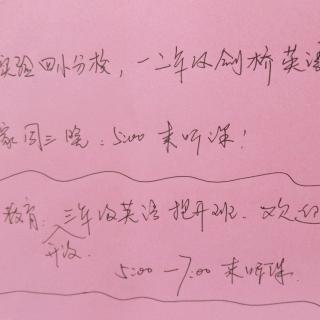 实验四小分校，一二年级剑桥英语
家周三晚：5:00 来听课！
教育：三年级英语提升班，欢迎
开设
5:00—7:00 来听课